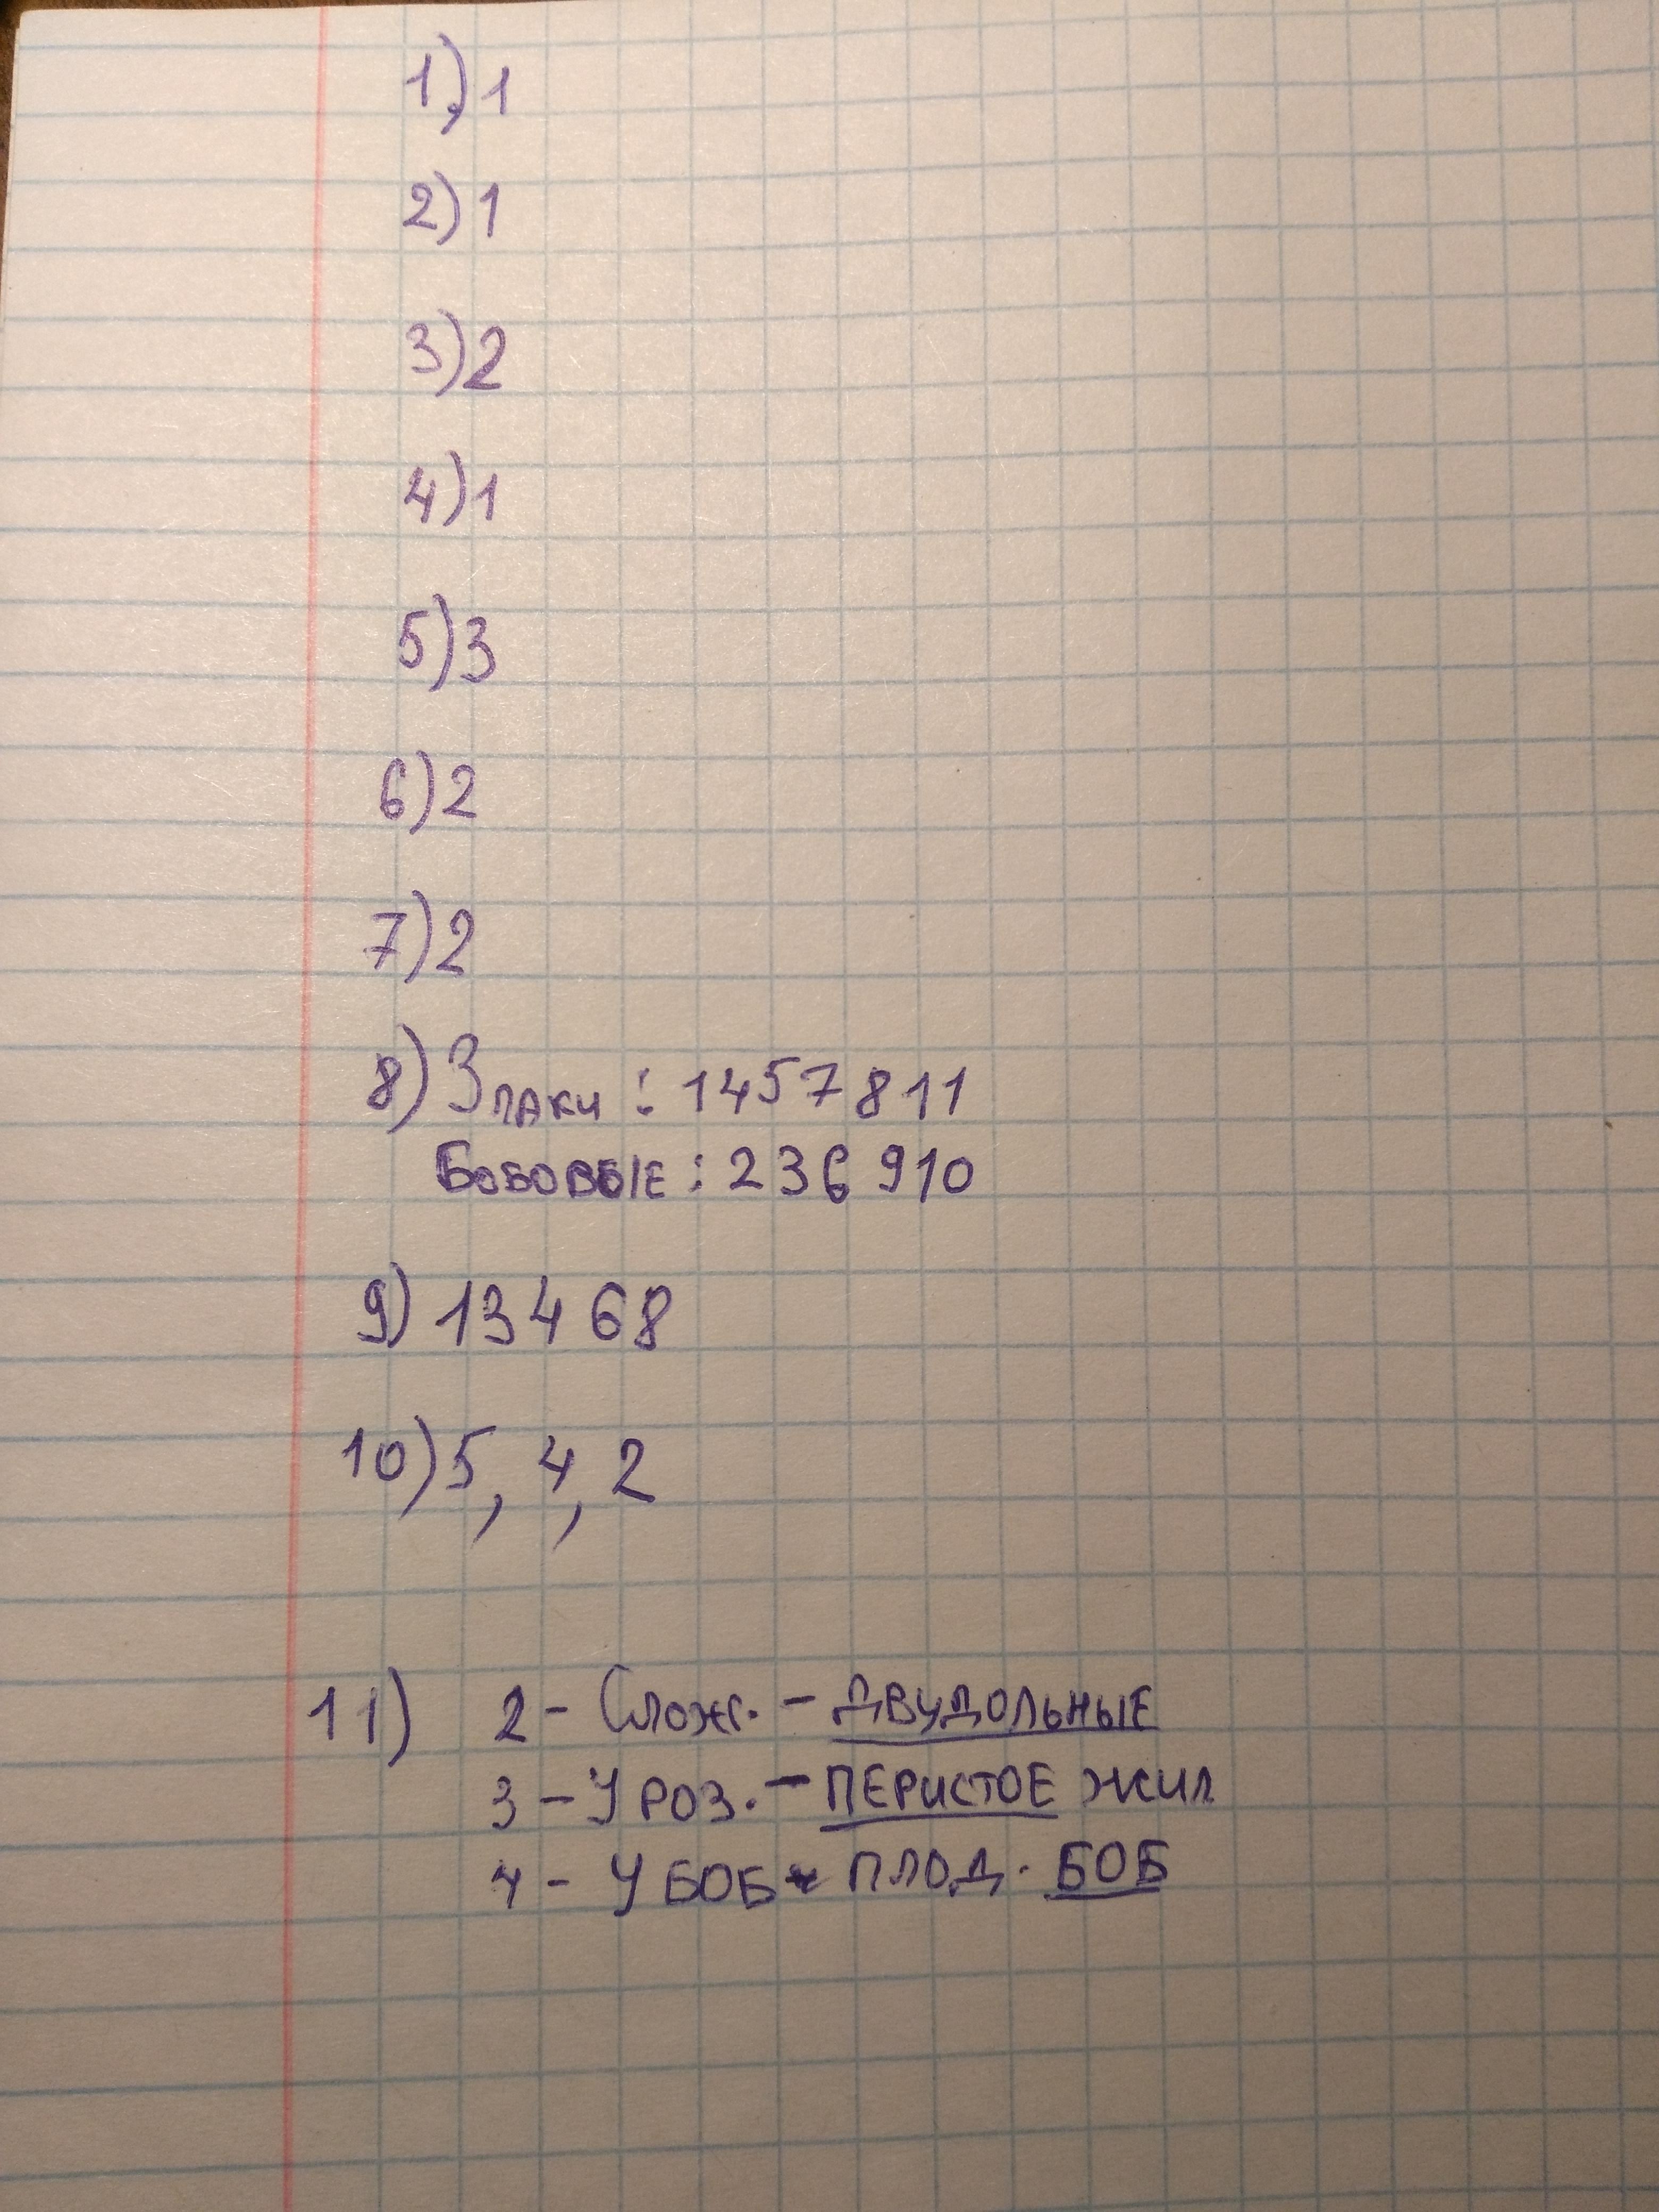 1) 1
2) 1
3) 2
4) 1
5) 3
6) 2
7) 2
8) Злаки : 1 4 5 7 8 11
Бобовые : 2 3 6 9 10
9) 1 3 4 6 8
10) 5, 4, 2
11) 2 - Слож. - двудольные
3 - У роз. - перистое жил
4 - У боб - плод. боб